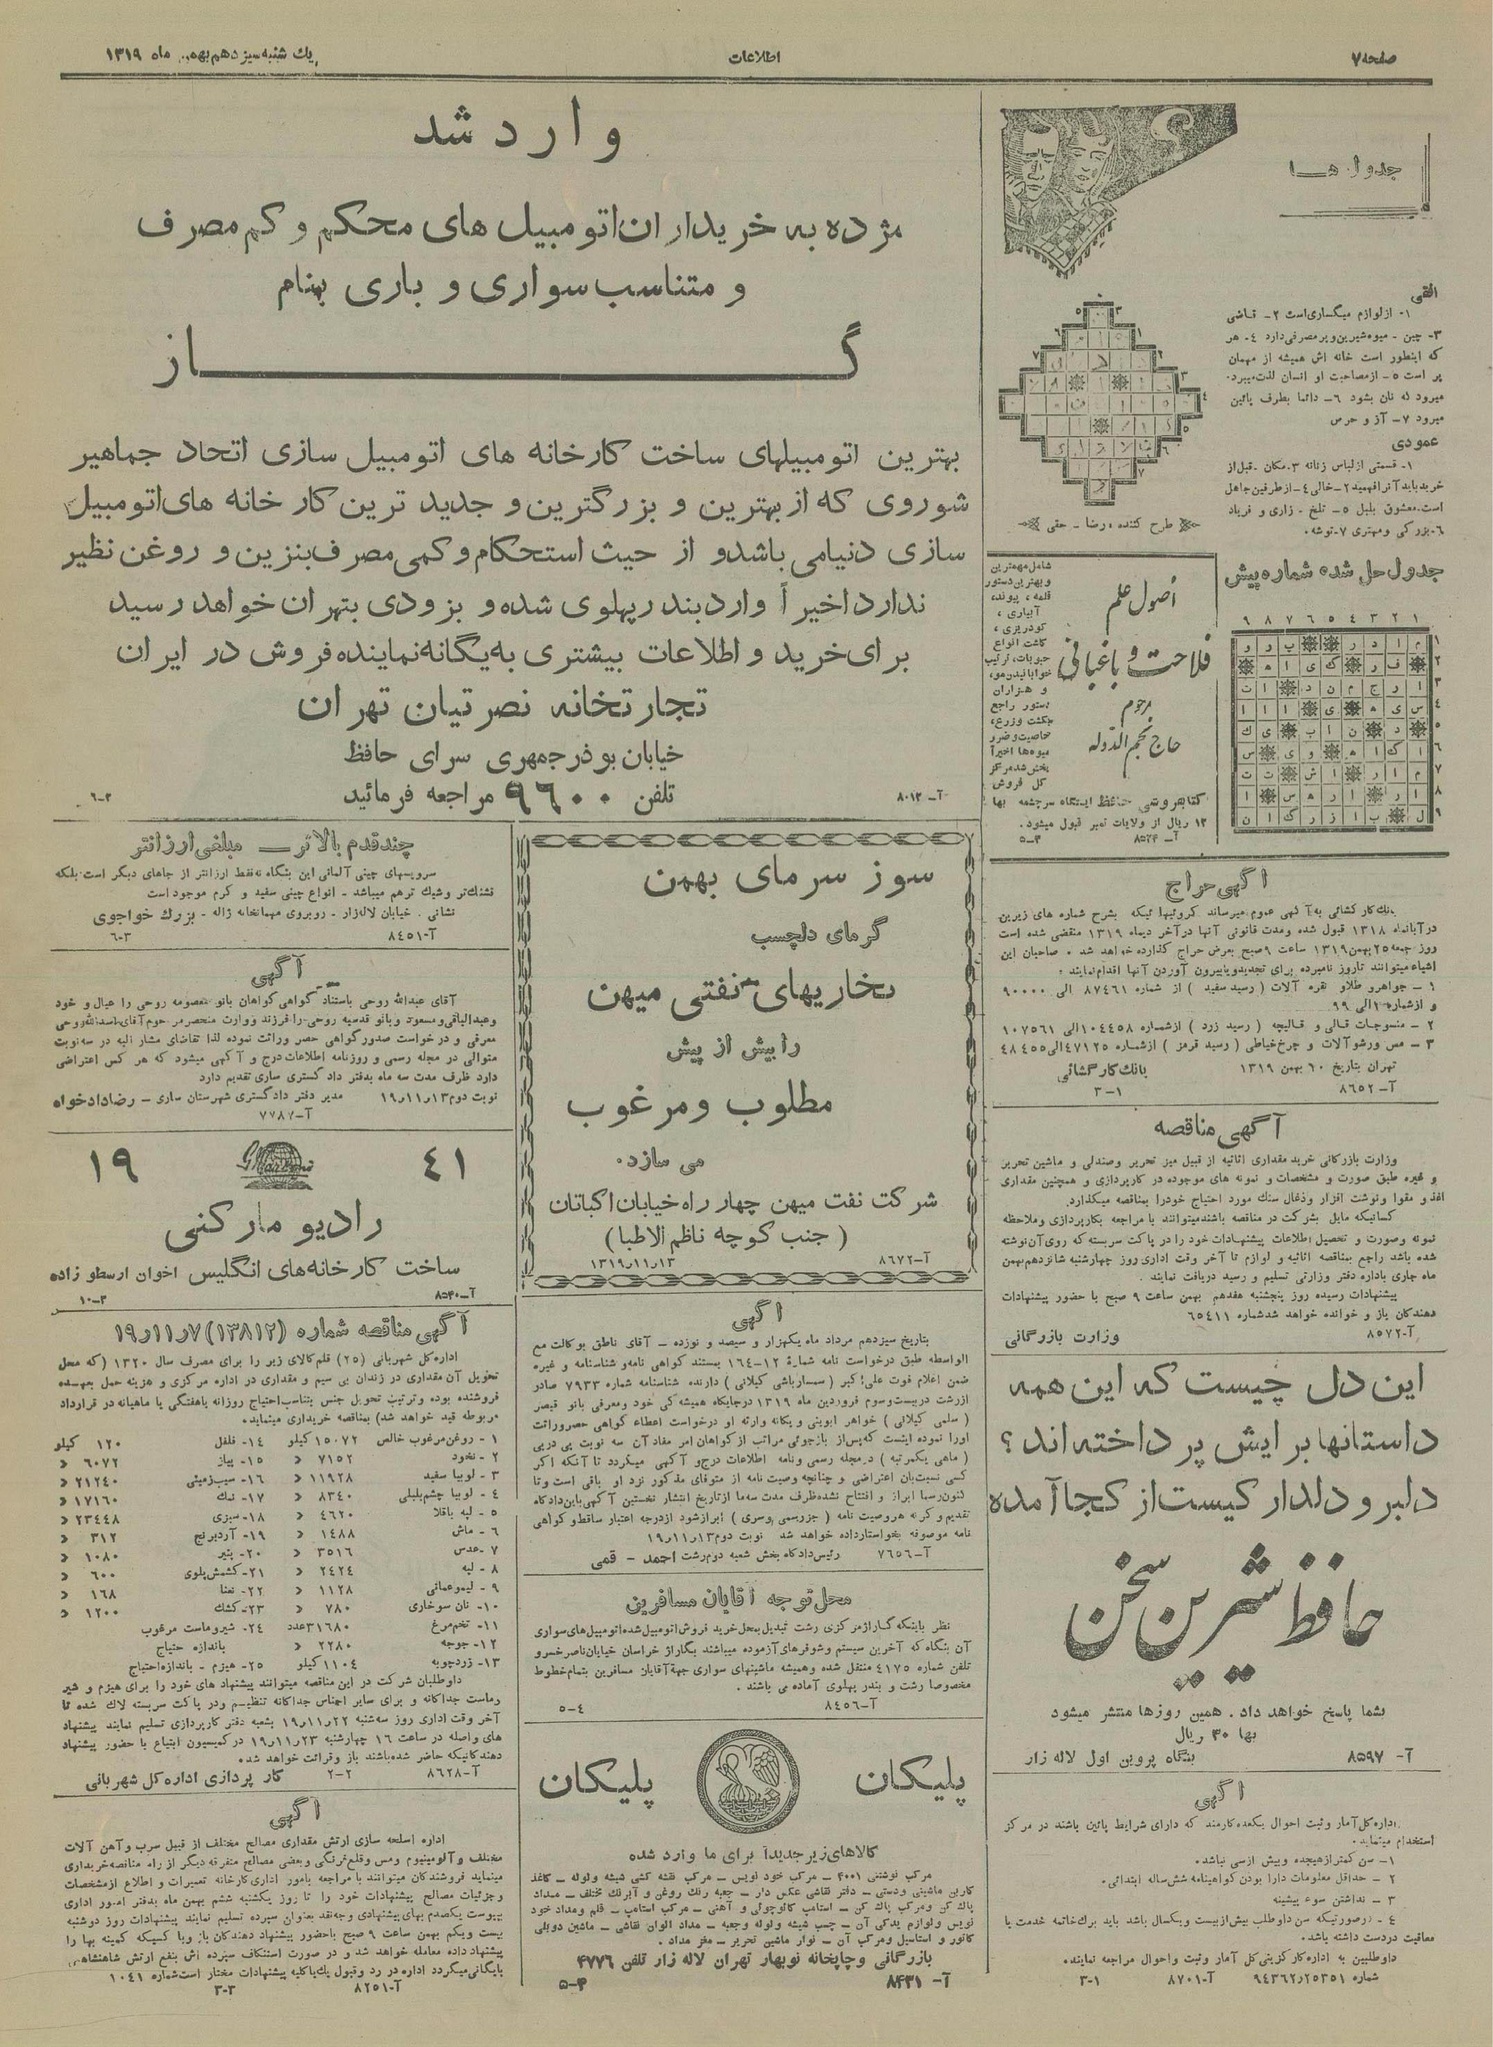 صفحه ۷
اطلاعات
یك شنبه سیزدهم بهمن ماه ۱۳۱۹
جدول هـا
افقی
۱- از لوازم میگساری است ۲- قاشی
۳- چین - میوه شیرین و پر مصرفی دارد ٤- هر
که اینطور است خانه اش همیشه از مهمان
پر است ٥- از مصاحبت او انسان لذت میبرد.
میرود له نان بشود ٦- دائما بطرف پائین
میرود ۷- آز و حرص
عمودی
۱- قسمتی از لباس زنانه ۳- مکان - قبل از
خرید باید آنرا فهمید ۲- خالی ٤- از طرفین جاهل
است. معشوق بلبل ٥- تلخ - زاری و فریاد
٦- بزرگی و مهتری ۷- توشه.
طرح کننده، رضا - حقی
جدول حل شده شماره پیش
اصول علم
فلاحت و باغبانی
مرحوم
حاج نجم الدوله
شامل مهمترین
و بهترین دستور
قلمه، پیوند،
آبیاری،
کودریزی،
کاشت انواع
حبوبات، ترتیب
خوابانیدن مو،
و هزاران
دستور راجع
بکشت و زرع،
خاصیت و ضرر
میوه ها اخیراً
پخش شد مرکز
کل فروش
کتابفروشی حافظ ایستگاه سرچشمه بها
۱۲ ریال از ولایات تمبر قبول میشود.
آ- ۸۵۲۴ ۵-۳
آگهی حراج
بانك کار گشائی به آگهی عموم میرساند گروئیهائیکه بشرح شماره های زیرین
در آبانماه ۱۳۱۸ قبول شده و مدت قانونی آنها در آخر دیماه ۱۳۱۹ منقضی شده است
روز جمعه ۲۵ بهمن ۱۳۱۹ ساعت ۹ صبح بمعرض حراج گذارده خواهد شد . صاحبان این
اشیاء میتوانند تا روز نامبرده برای تجدید و یا بیرون آوردن آنها اقدام نمایند :
۱ - جواهر و طلا و نقره آلات ( رسید سفید ) از شماره ۸۷٤٦۱ الی ۹۰۰۰۰
و از شماره ۱ الی ۹۹
۲ - منسوجات قالی و قالیچه ( رسید زرد ) از شماره ۱۰٤٤٥۸ الی ۱۰۷٥٦۱
۳ - مس ورشو آلات و چرخ خیاطی ( رسید قرمز ) از شماره ٤۷۱۲٥ الی ٤۸٤٥٥
تهران بتاریخ ۶۰ بهمن ۱۳۱۹ بانك کار گشائی
آ- ۸٦٥۲ ۳-۱
آگهی مناقصه
وزارت بازرگانی خرید مقداری اثاثیه از قبیل میز تحریر و صندلی و ماشین تحریر
و غیره طبق صورت و مشخصات و نمونه های موجوده در کارپردازی و همچنین مقداری
کاغذ و مقوا و نوشت افزار و ذغال سنك مورد احتیاج خود را بمناقصه میگذارد.
کسانیکه مایل بشرکت در مناقصه باشند میتوانند با مراجعه بکارپردازی و ملاحظه
نمونه و صورت و تحصیل اطلاعات پیشنهادات خود را در پاکت سربسته که روی آن نوشته
شده باشد راجع بمناقصه اثاثیه و لوازم تا آخر وقت اداری روز چهارشنبه شانزدهم بهمن
ماه جاری باداره دفتر وزارتی تسلیم و رسید دریافت نمایند .
پیشنهادات رسیده روز پنجشنبه هفدهم بهمن ساعت ۹ صبح با حضور پیشنهادات
دهندگان باز و خوانده خواهد شد شماره ٦٥٤۱۱
آ- ۸٥۷۲ وزارت بازرگانی
این دل چیست که این همه
داستانها برایش پرداخته اند ؟
دلبر و دلدار کیست از کجا آمده
حافظ شیرین سخن
بشما پاسخ خواهد داد . همین روزها منتشر میشود
بها ۴۰ ریال
آ- ۸۵۹۷ بنگاه پروین اول لاله زار
آگهی
اداره کل آمار و ثبت احوال یکعده کارمند که دارای شرایط پائین باشند در مرکز
استخدام مینماید.
۱- سن کمتر از هیجده و بیش از سی نباشد.
۲ - حداقل معلومات دارا بودن گواهینامه شش ساله ابتدائی.
۳ - نداشتن سوء پیشینه
٤ - در صورتیکه سن داوطلب بیش از بیست و یکسال باشد باید برك خاتمه خدمت یا
معافیت در دست داشته باشد.
داوطلبین به اداره کارگزینی کل آمار و ثبت و احوال مراجعه نمایند.
شماره ۹٤۳٦۲ر۲٥۳٥۱ آ- ۸۷۰۱ ۳-۱
وارد شد
مژده به خریداران اتومبیل های محکم و کم مصرف
و متناسب سواری و باری بنام
گـــاز
بهترین اتومبیلهای ساخت کارخانه های اتومبیل سازی اتحاد جماهیر
شوروی که از بهترین و بزرگترین و جدید ترین کارخانه های اتومبیل
سازی دنیا می باشد و از حیث استحکام و کمی مصرف بنزین و روغن نظیر
ندارد اخیراً وارد بندر پهلوی شده و بزودی بتهران خواهد رسید
برای خرید و اطلاعات بیشتری به یگانه نماینده فروش در ایران
تجارتخانه نصرتیان تهران
خیابان بوذرجمهری سرای حافظ
تلفن ۹۶۰۰ مراجعه فرمائید
آ- ۸۰۱۲ ۶-۲
سوز سرمای بهمن
گرمای دلچسب
بخاریهای نفتی میهن
را بیش از پیش
مطلوب و مرغوب
می سازد.
شرکت نفت میهن چهار راه خیابان اکباتان
( جنب کوچه ناظم الاطبا )
آ- ۸٦۷۲ ۱۳ر۱۱ر۱۳۱۹
آگهی
بتاریخ سیزدهم مرداد ماه یکهزار و سیصد و نوزده - آقای ناطق بوکالت مع
الواسطه طبق درخواست نامه شماره ۱۲-۱٦٤ بمستند گواهی نامه و شناسنامه و غیره
ضمن اعلام فوت علی اکبر ( سمسارباشی گیلانی ) دارنده شناسنامه شماره ۷۹۳۳ صادر
از رشت در بیست و سوم فروردین ماه ۱۳۱۹ در جایگاه همیشه گی خود و معرفی بانو قیصر
( سلمی گیلانی ) خواهر ابوینی و یگانه وارثه او درخواست اعطاء گواهی حصر وراثت
اورا نموده اینست که پس از بازجوئی مراتب از گواهان امر مفاد آن سه نوبت پی در پی
( ماهی یکمرتبه ) در مجله رسمی و نامه اطلاعات درج و آگهی میگردد تا آنکه اگر
کسی نسبت بآن اعتراضی و چنانچه وصیت نامه از متوفای مذکور نزد او باقی است و تا
کنون رسماً ابراز و افتتاح نشده ظرف مدت سه ماه از تاریخ انتشار نخستین آگهی باین دادگاه
تقدیم و گرنه هر وصیت نامه ( جز رسمی و سری ) ابراز شود از درجه اعتبار ساقط و گواهی
نامه موصوفه بخواستار داده خواهد شد نوبت دوم ۱۳ر۱۱ر۱۹
آ- ۷٦٥٦ رئیس دادگاه بخش شعبه دوم رشت احمد - قمی
محل توجه آقایان مسافرین
نظر باینکه گاراژ مرکزی رشت تبدیل بمحل خرید فروش اتومبیل شده اتومبیل های سواری
آن بنگاه که آخرین سیستم و شوفرهای آزموده میباشند بگاراژ خراسان خیابان ناصرخسرو
تلفن شماره ٤۱۷٥ منتقل شده و همیشه ماشینهای سواری جهة آقایان مسافرین بتمام خطوط
مخصوصا رشت و بندر پهلوی آماده می باشند .
آ- ۸٤٥٦ ٥-٤
پلیکان پلیکان
کالاهای زیر جدیداً برای ما وارد شده
مرکب نوشتنی ۴۰۰۱ - مرکب خود نویس - مرکب نقشه کشی شیشه و لوله - کاغذ
کاربن ماشینی و دستی - دفتر نقاشی عکس دار - جعبه رنك روغن و آبرنك مختلف - مداد
پاك کن و مرکب پاك کن - استامپ کائوچوئی و آهنی - مرکب استامپ - قلم و مداد خود
نویس و لوازم یدکی آن - چسب شیشه و لوله و جعبه - مداد الوان نقاشی - ماشین دوبلی
کاتور و استنسیل و مرکب آن - نوار ماشین تحریر - مغز مداد .
بازرگانی و چاپخانه نوبهار تهران لاله زار تلفن ۴۷۷۶
آ- ۸۴۳۱ ۵-۴
چند قدم بالاتر — مبلغی ارزانتر
سرویسهای چینی آلمانی این بنگاه نه فقط ارزانتر از جاهای دیگر است بلکه
قشنگ تر و شیك تر هم میباشد - انواع چینی سفید و کرم موجود است
نشانی . خیابان لاله زار - روبروی مهمانخانه ژاله - بزرك خواجوی
آ- ۸٤٥۱ ٦-۳
آگهی
آقای عبدالله روحی باستناد گواهی گواهان بانو معصومه روحی را عیال و خود
و عبدالباقی و مسعود و بانو قدسیه روحی را فرزند و وارث منحصر مرحوم آقای اسدالله روحی
معرفی و درخواست صدور گواهی حصر وراثت نموده لذا تقاضای مشار الیه در سه نوبت
متوالی در مجله رسمی و روزنامه اطلاعات درج و آگهی میشود که هر کس اعتراضی
دارد ظرف مدت سه ماه بدفتر دادگستری ساری تقدیم دارد
نوبت دوم ۱۳ر۱۱ر۱۹ مدیر دفتر دادگستری شهرستان ساری - رضا دادخواه
آ- ۷۷۸۷
۱۹ Marconi ٤۱
رادیو مارکنی
ساخت کارخانه های انگلیس اخوان ارسطو زاده
آ- ۸۵۴۰ ۱۰-۳
آگهی مناقصه شماره (۱۳۸۱۲) ۷ر۱۱ر۱۹
اداره کل شهربانی (۲٥) قلم کالای زیر را برای مصرف سال ۱۳۲۰ (که محل
تحویل آن مقداری در زندان بی سیم و مقداری در اداره مرکزی و هزینه حمل بعهده
فروشنده بوده و ترتیب تحویل جنس بتناسب احتیاج روزانه یا هفتگی یا ماهیانه در قرارداد
مربوطه قید خواهد شد) بمناقصه خریداری مینماید.
۱ - روغن مرغوب خالص ۱٥۰۷۲ کیلو ۱٤- فلفل ۱۲۰ کیلو
۲ - نخود ۷۱٥۲ » ۱٥- پیاز ٦۰۷۲ »
۳ - لوبیا سفید ۱۱۹۲۸ » ۱٦- سیب زمینی ۲۱۲٤۰ »
٤ - لوبیا چشم بلبلی ۸۳٤۰ » ۱۷- نمك ۱۷۱٦۰ »
٥ - لپه باقلا ٤٦۲۰ » ۱۸- سبزی ۲۳٤٤۸ »
٦ - ماش ۱٤۸۸ » ۱۹- آرد برنج ۳۱۲ »
۷ - عدس ۳٥۱٦ » ۲۰- پنیر ۱۰۸۰ »
۸ - لپه ۲٤۲٤ » ۲۱- کشمش پلوی ٦۰۰ »
۹ - لیمو عمانی ۱۱۲۸ » ۲۲- نعنا ۱٦۸ »
۱۰- نان سوخاری ۷۸۰ » ۲۳- کشك ۱۲۰۰ »
۱۱- تخم مرغ ۳۱٦۸۰ عدد ۲٤- شیر و ماست مرغوب
۱۲- جوجه ۲۲۸۰ » باندازه حتیاج
۱۳- زردچوبه ۱۱۰٤ کیلو ۲٥- هیزم - باندازه احتیاج
داوطلبان شرکت در این مناقصه میتوانند پیشنهاد های خود را برای هیزم و شیر
و ماست جداگانه و برای سایر اجناس جداگانه تنظیم و در پاکت سربسته لاك شده تا
آخر وقت اداری روز سه شنبه ۲۲ر۱۱ر۱۹ بشعبه دفتر کارپردازی تسلیم نمایند پیشنهاد
های واصله در ساعت ۱٦ چهارشنبه ۲۳ر۱۱ر۱۹ در کمیسیون ابتیاع با حضور پیشنهاد
دهندگانیکه حاضر شده باشند باز و قرائت خواهد شد.
آ- ۸٦۲۸ ۲-۲ کار پردازی اداره کل شهربانی
آگهی
اداره اسلحه سازی ارتش مقداری مصالح مختلف از قبیل سرب و آهن آلات
مختلف و آلومینیوم ومس و قلع فرنگی و بعضی مصالح متفرقه دیگر از راه مناقصه خریداری
مینماید فروشندگان میتوانند با مراجعه بامور اداری کارخانه تعمیرات و اطلاع از مشخصات
و جزئیات مصالح پیشنهادات خود را تا روز یکشنبه ششم بهمن ماه بدفتر امور اداری
بپیوست یکصدم بهای پیشنهادی وجه نقد بعنوان سپرده تسلیم نمایند پیشنهادات روز دوشنبه
بیست و یکم بهمن ساعت ۹ صبح باحضور پیشنهاد دهندگان باز و با کسیکه کمینه بها را
پیشنهاد داده معامله خواهد شد و در صورت استنکاف سپرده اش بنفع ارتش شاهنشاهی
بایگانی میگردد اداره در رد و قبول یك یا کلیه پیشنهادات مختار است شماره ۱۰٤۱
آ- ۸۲٥۱ ۳-۳